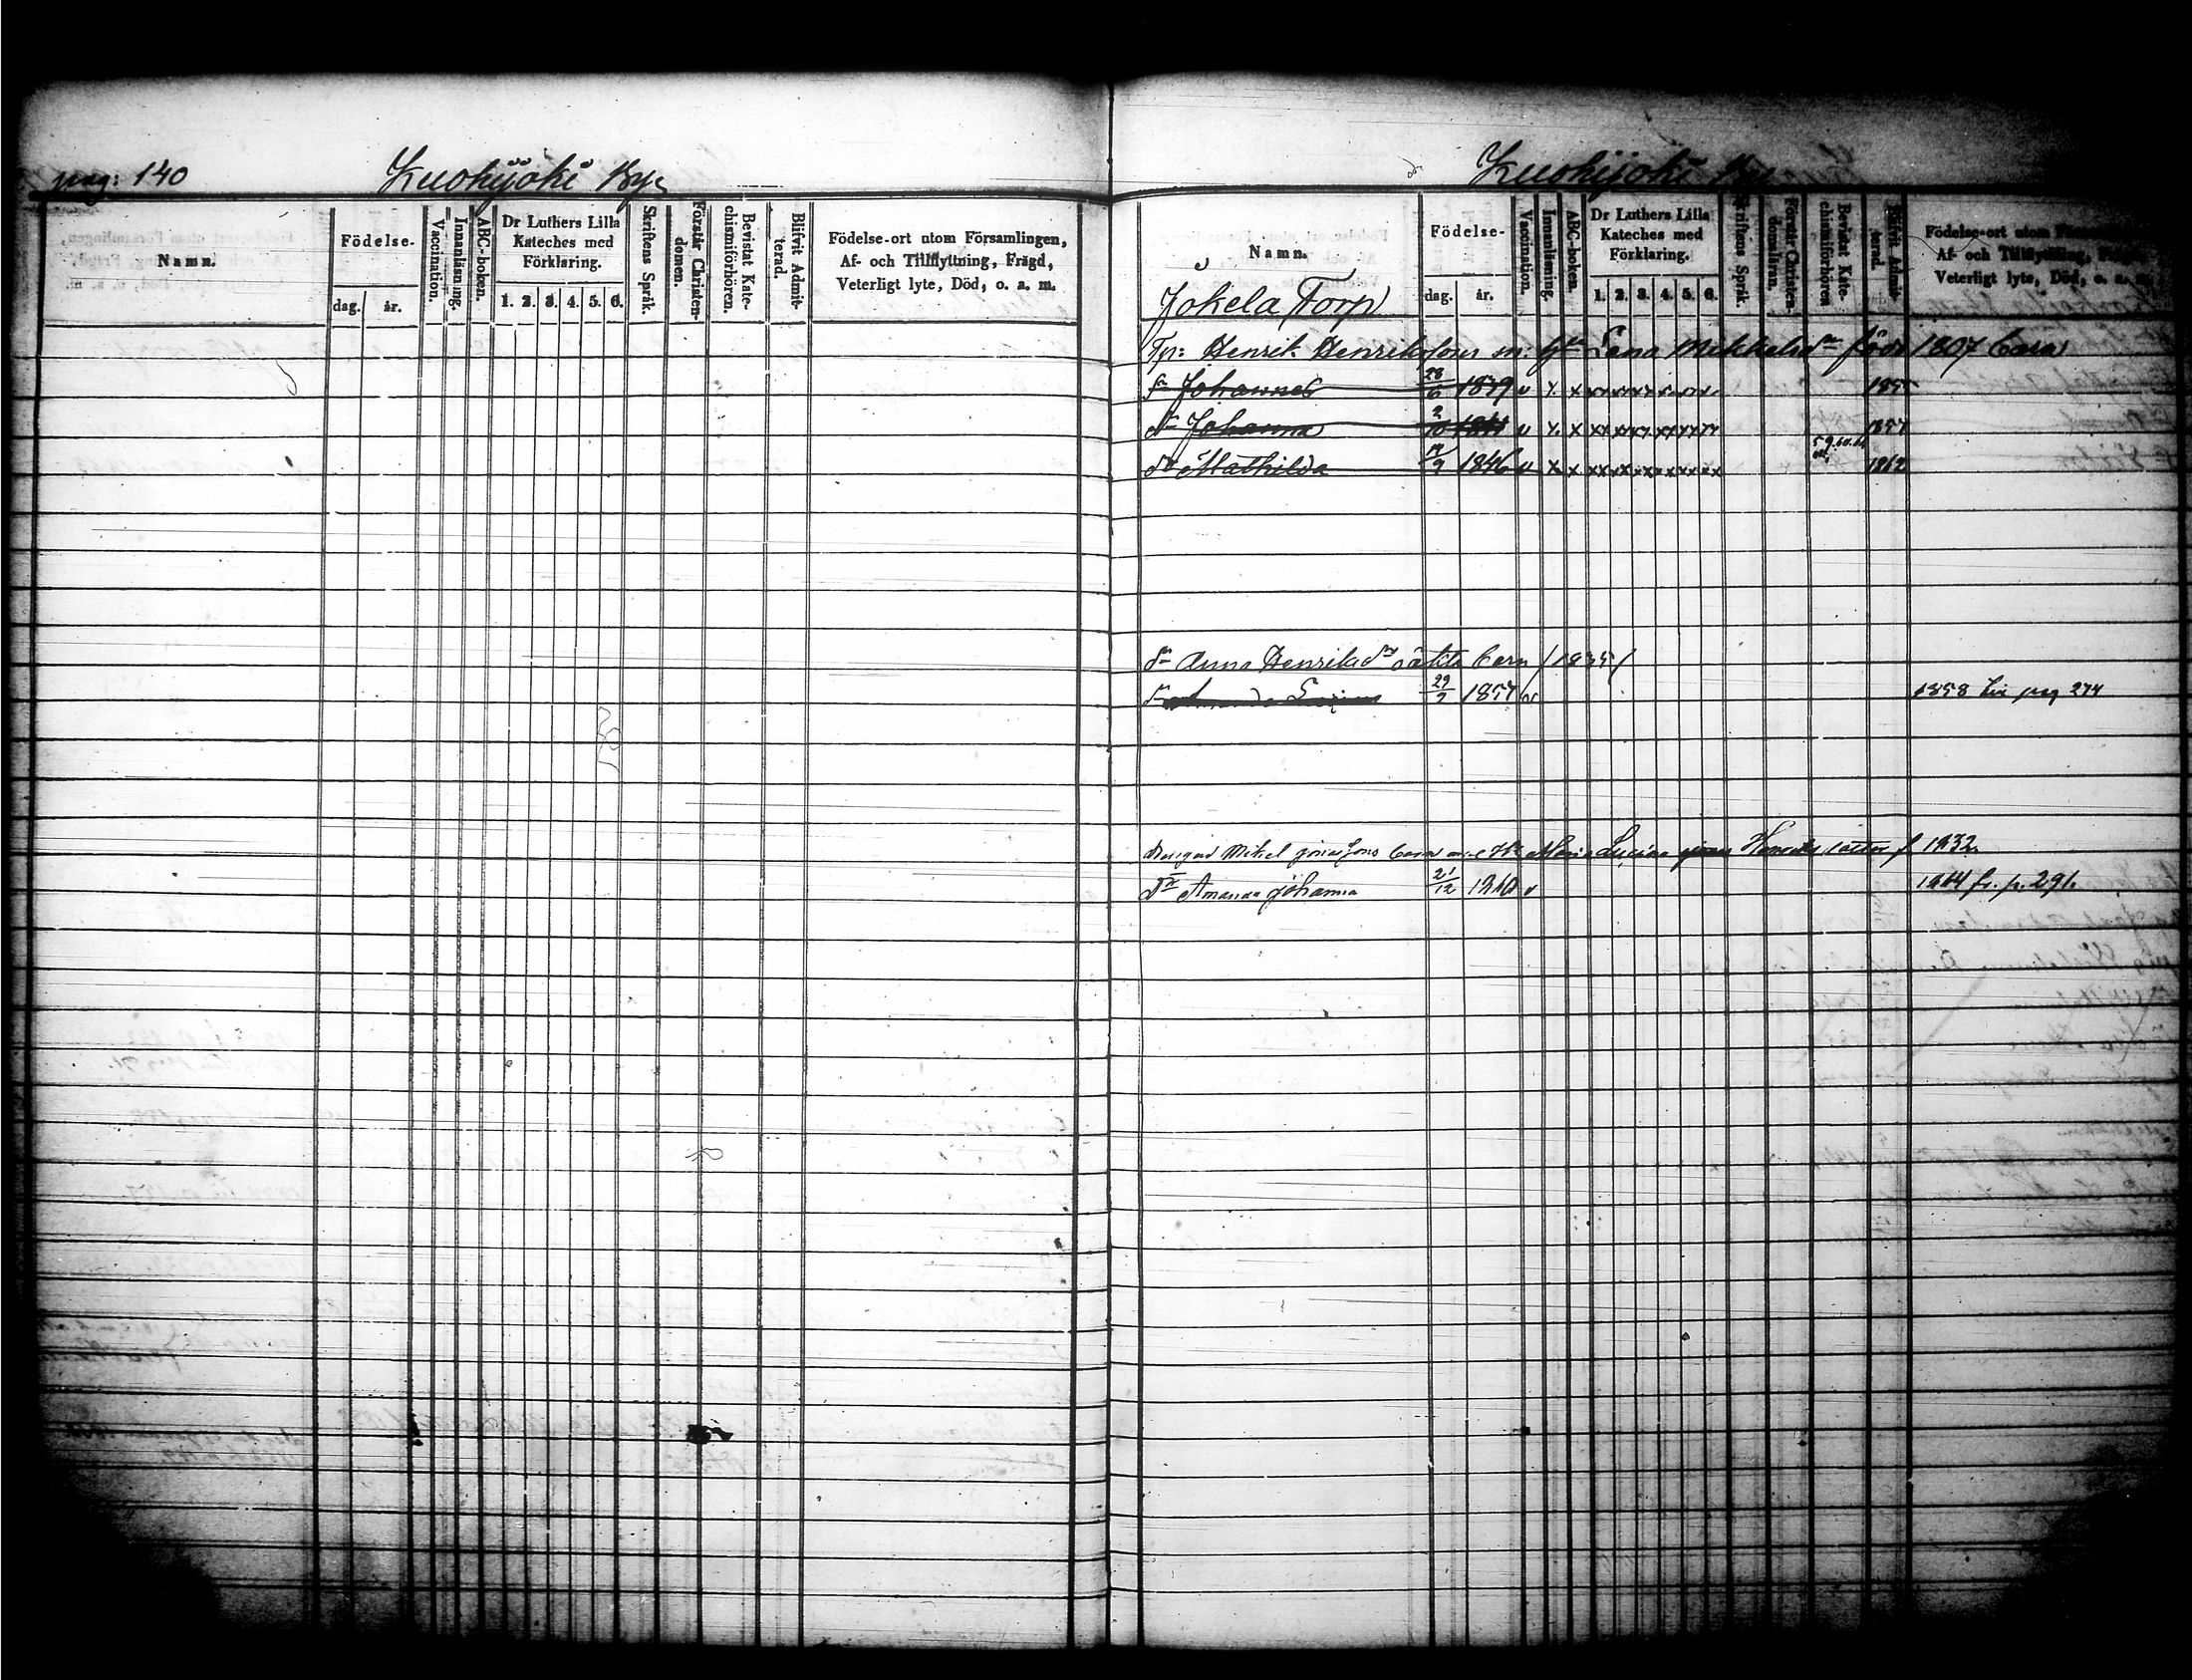 pag: 140 Kuohijoki By
Namn.
Födelse-
dag. år.
Vaccination.
Innanläsning.
ABC-boken.
Dr Luthers Lilla Kateches med Förklaring.
1. 2. 3. 4. 5. 6.
Skriftens Språk.
Förstår Christendomen.
Bevistat Katechismiförhören.
Blifvit Admitterad.
Födelse-ort utom Församlingen,
Af- och Tillflyttning, Frägd,
Veterligt lyte, Död, o. a. m.
Kuohijoki By
Namn.
Jokela Torp
Födelse-
dag. år.
Vaccination.
Innanläsning.
ABC-boken.
Dr Luthers Lilla Kateches med Förklaring.
1. 2. 3. 4. 5. 6.
Skriftens Språk.
Förstår Christendomsläran.
Bevistat Katechismiförhören
Blifvit Admitterad.
Födelse-ort utom
Af- och Tillflyttning,
Veterligt lyte, Död, o. a. m.
Tp: Henrik Henriksons m: Lena Mickelsdr född 1807 barn
Sn Johannes 28/6 1839 v x x xx xx xx xx xx xx 185
Dr Johanna 2/10 v x x xx xx xx xx xx xx 1857
Dr Mathilda 17/9 1846 v x x xx xx xx xx xx xx 59.60.61 1862
Dr Anna Henriksdrs oäkta barn / 1835/
Dr Amanda 29/7 1857 v 1858 till pag 274
Drengen Mikel Johanssons barn Maria Lucina Henriksdotter f 1832.
Dr Amanda Johanna 21/12 1860 v 1864 fr. p. 291.